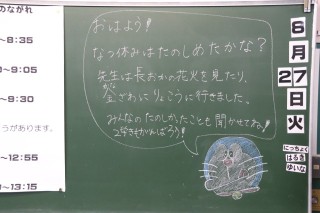 のながれ
~8:35
~9:05
~9:30
うがあります。
~12:55
~13:15
おはよう!
なつ休みはたのしめたかな?
先生は長おかの花火を見たり、
かな
金ざわにりょこうに行きました。
みんなのたのしかったことも聞かせてね。
2学きもがんばろう!
6月27日火
にっちょく
はるき
ゆいな